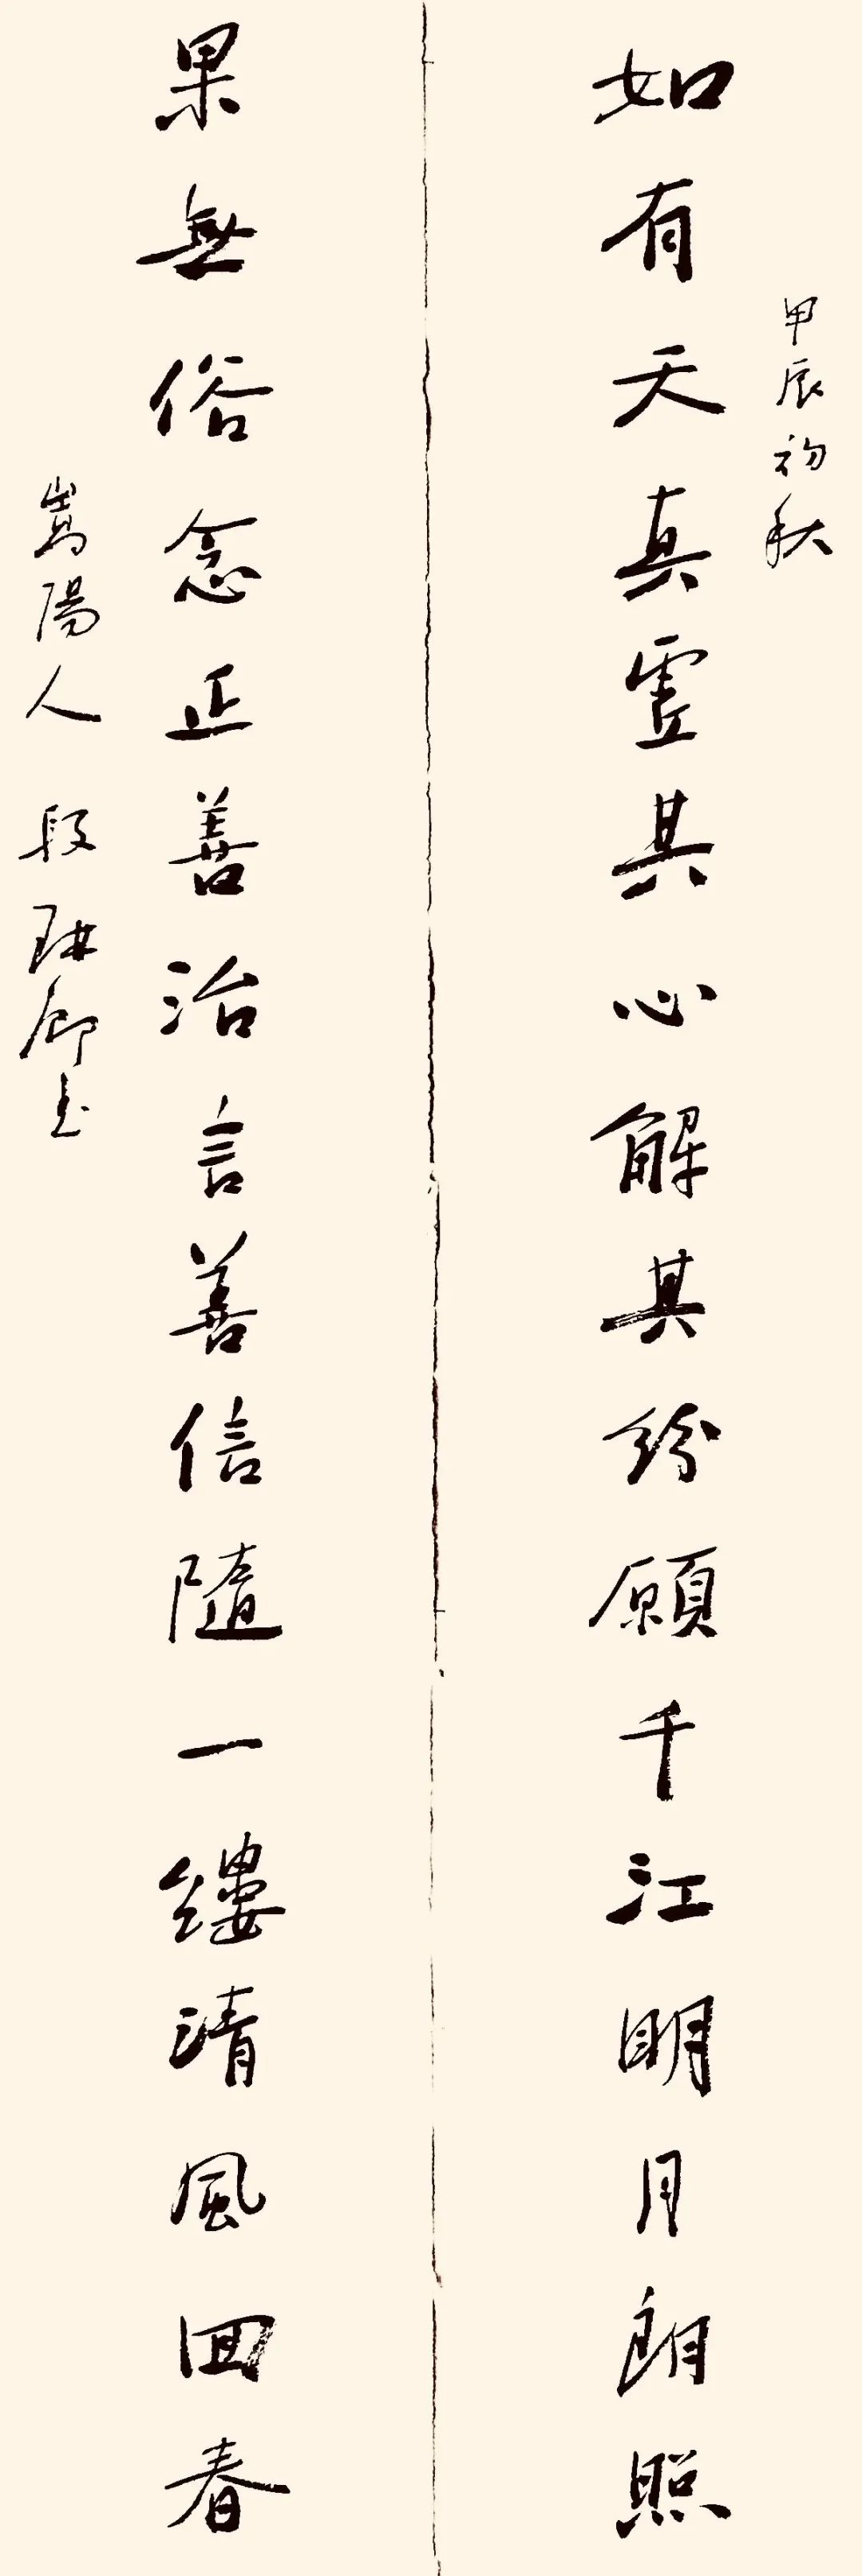 甲辰初秋
如有天真虛其心解其紛願千江明月朗照
果無俗念正善治言善信隨一縷清風回春
嵩陽人 段琳卿書